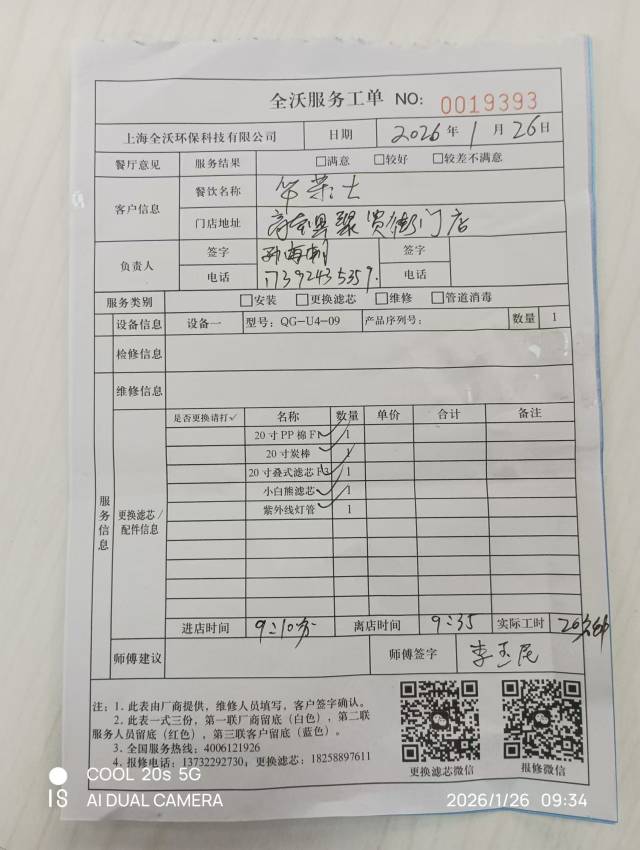 全沃服务工单 NO: 0019393
上海全沃环保科技有限公司 日期 2026年1月26日
餐厅意见 服务结果 □满意 □较好 □较差不满意
客户信息 餐饮名称 华莱士
门店地址 聚贤街门店
负责人 签字 签字
电话 17392435359. 电话
服务类别 □安装 □更换滤芯 □维修 □管道消毒
设备信息 设备一 型号: QG-U4-09 产品序列号: 数量 1
检修信息
维修信息
服务信息
更换滤芯/配件信息
是否更换请打✓ 名称 数量 单价 合计 备注
20寸PP棉F1 ✓ 1
20寸炭棒 ✓ 1
20寸叠式滤芯F3 ✓ 1
小白熊滤芯 ✓ 1
紫外线灯管 ✓ 1
进店时间 9:10分 离店时间 9:35 实际工时
师傅建议 师傅签字 李
注: 1. 此表由厂商提供, 维修人员填写, 客户签字确认。
2. 此表一式三份, 第一联厂商留底 (白色), 第二联
服务人员留底 (红色), 第三联客户留底 (蓝色)。
3. 全国服务热线: 4006121926
4. 报修电话: 13732292730; 更换滤芯: 18258897611
更换滤芯微信 报修微信
COOL 20s 5G
AI DUAL CAMERA 2026/1/26 09:34